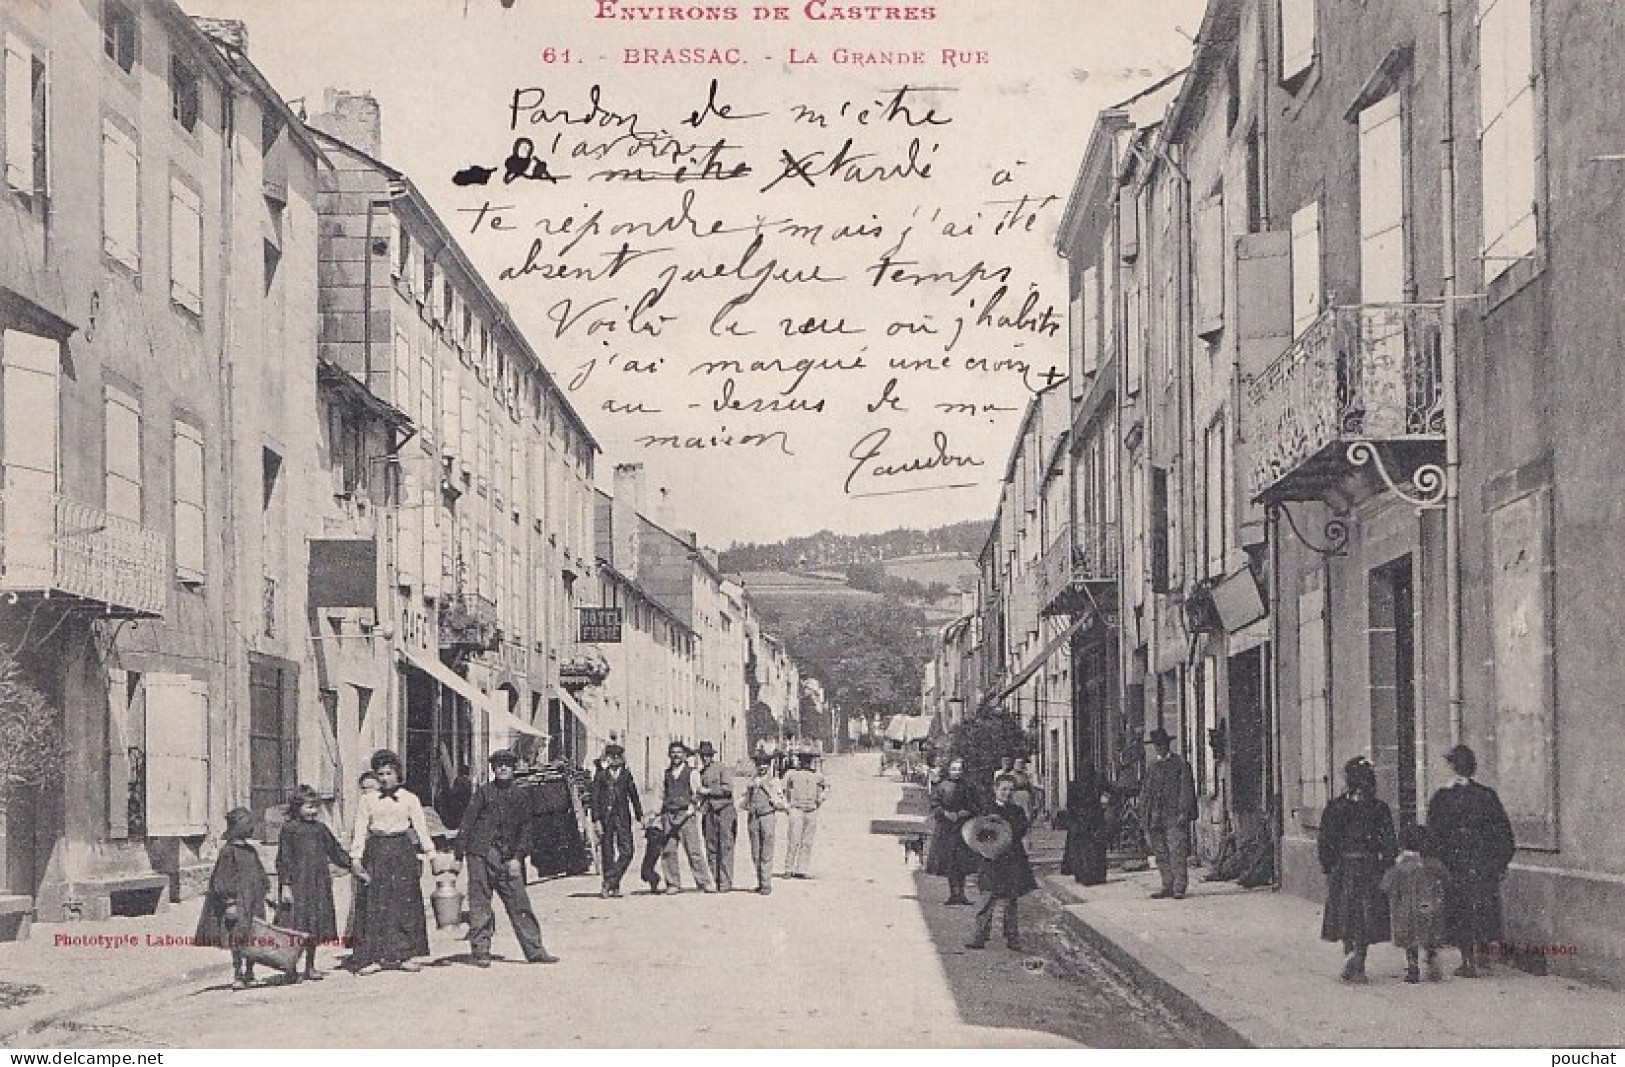 ENVIRONS DE CASTRES
61. - BRASSAC. - LA GRANDE RUE
Pardon de m'être
d'avoir
de m'être tardé à
te répondre mais j'ai été
absent quelque temps.
Voilà la rue où j'habite
j'ai marqué une croix +
au-dessus de ma
maison
CAFÉ
HOTEL
FUSIÉ
Phototypie Labouche frères, Toulouse
www.delcampe.net
pouchat